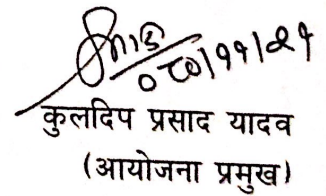 ०८०/११/२१
कुलदिप प्रसाद यादव
(आयोजना प्रमुख)